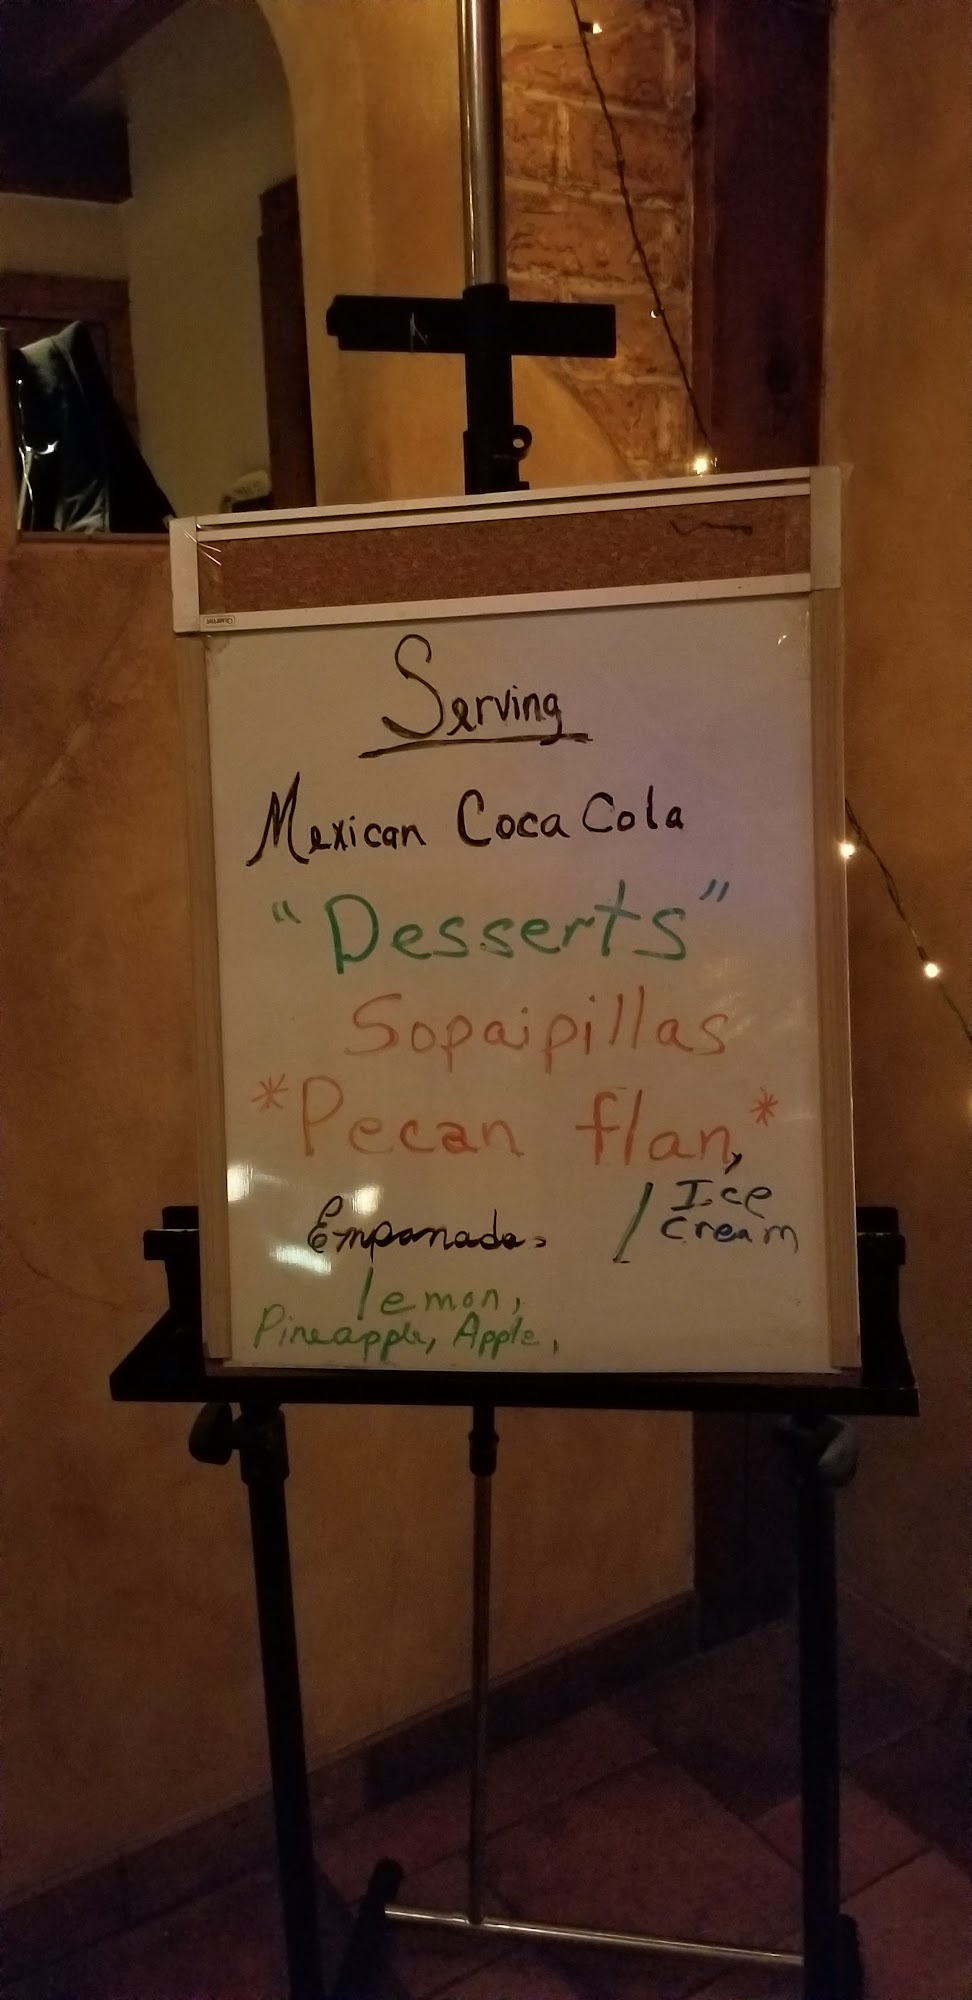 Quartet
Serving
Mexican Coca Cola
"Desserts"
Sopaipillas
*Pecan flan,*
Empanadas / Ice Cream
lemon,
Pineapple, Apple,